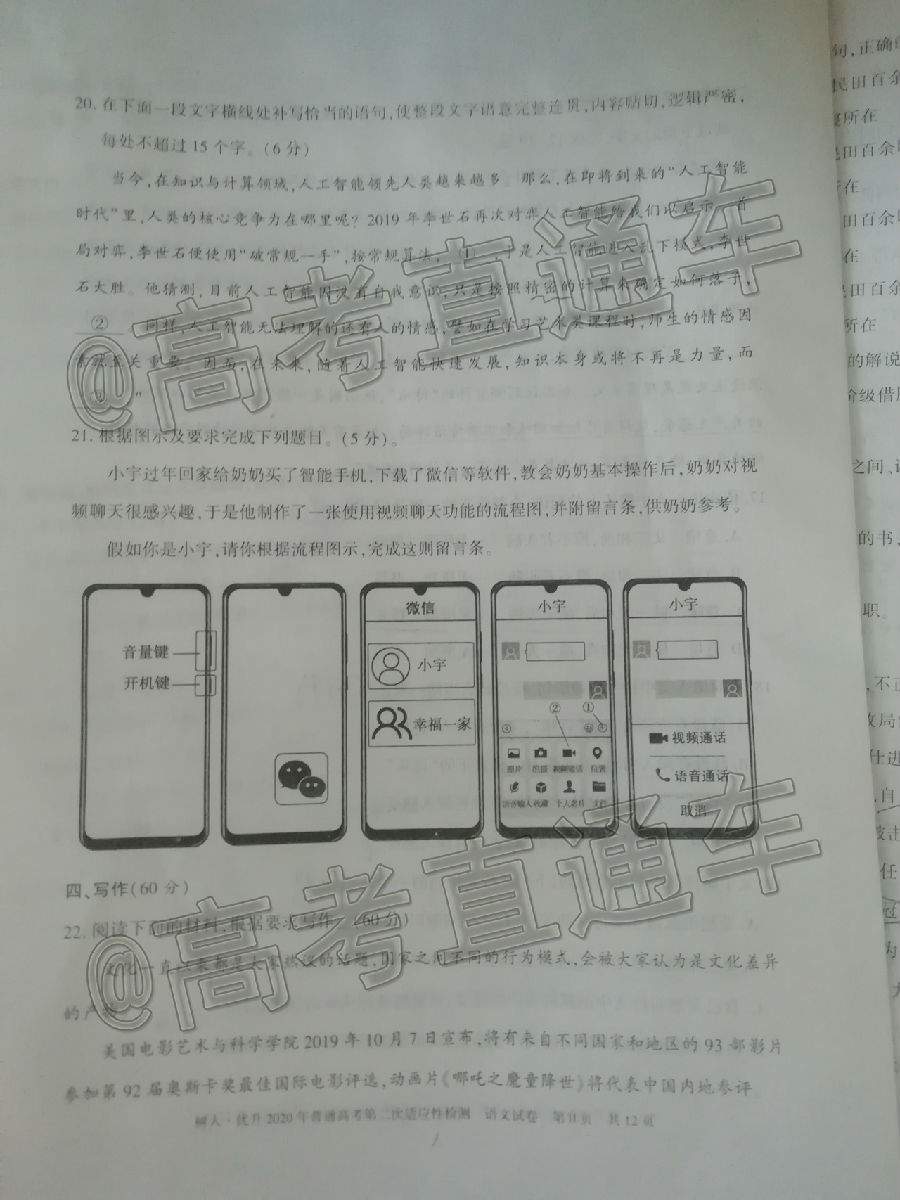 20. 在下面一段文字横线处补写恰当的语句,使整段文字语意完整连贯,内容贴切,逻辑严密,
每处不超过15个字。(6分)
当今,在知识与计算领域,人工智能领先人类越来越多。那么,在即将到来的“人工智能
时代”里,人类的核心竞争力在哪里呢?2019年李世石再次对弈人工智能给我们以启示。首
局对弈,李世石便使用“破常规一手”,按常规算法, ① 于是人工智能进入乱下模式,李世
石大胜。他猜测,目前人工智能因没有自我意识,只是按照精密的计算来确定如何落子,
② 同样,人工智能无法理解的还有人的情感,譬如在学习艺术类课程时,师生的情感因
素就至关重要。因而,在未来,随着人工智能快速发展,知识本身或将不再是力量,而
③ ”
21. 根据图示及要求完成下列题目。(5分)。
小宇过年回家给奶奶买了智能手机,下载了微信等软件,教会奶奶基本操作后,奶奶对视
频聊天很感兴趣,于是他制作了一张使用视频聊天功能的流程图,并附留言条,供奶奶参考。
假如你是小宇,请你根据流程图示,完成这则留言条。
音量键
开机键
微信
小宇
幸福一家
小宇
② ①
照片 拍摄 视频通话 位置
语音输入 收藏 个人名片 文件
小宇
视频通话
语音通话
取消
四、写作(60分)
22. 阅读下面的材料,根据要求写作。(60分)
文化一直以来都是大家热议的话题,国家之间不同的行为模式,会被大家认为是文化差异
的产物。
美国电影艺术与科学学院2019年10月7日宣布,将有来自不同国家和地区的93部影片
参加第92届奥斯卡奖最佳国际电影评选,动画片《哪吒之魔童降世》将代表中国内地参评。
树人·优升2020年普通高考第二次适应性检测 语文试卷 第11页 共12页
@高考直通车
@高考直通车
句,正确
民田百余
所在
民田百余
所在
田百余
在
民田百余
所在
的解说
阶级借
之间、
的书,
职。